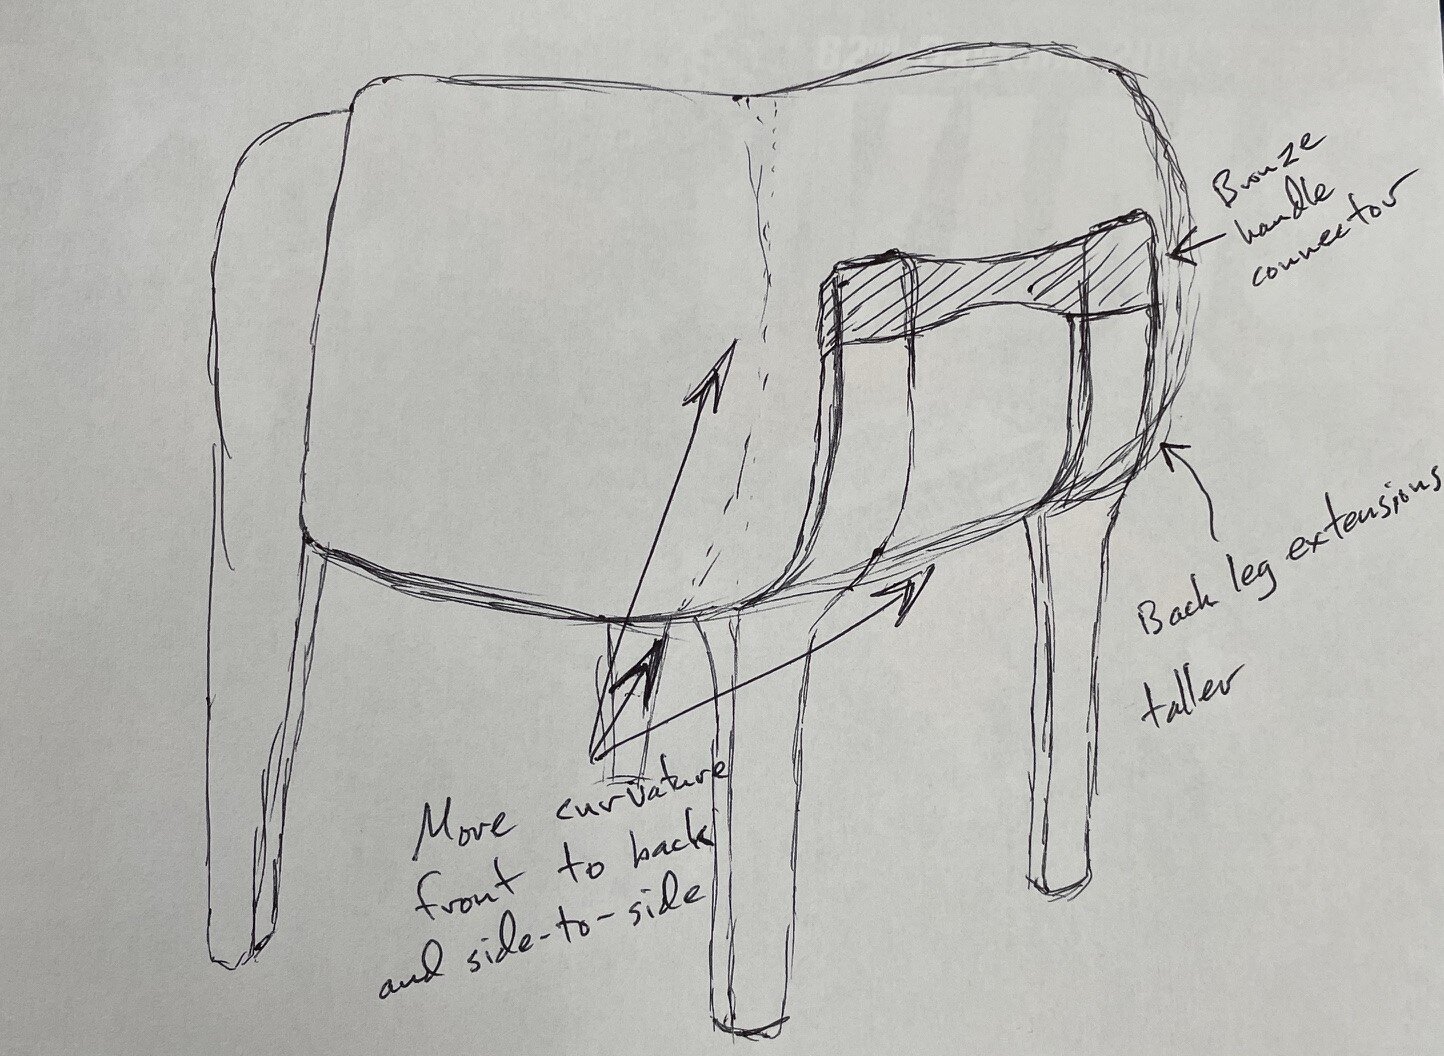 Bronze
handle
connector
Back leg extensions
taller
More curvature
front to back
and side-to-side